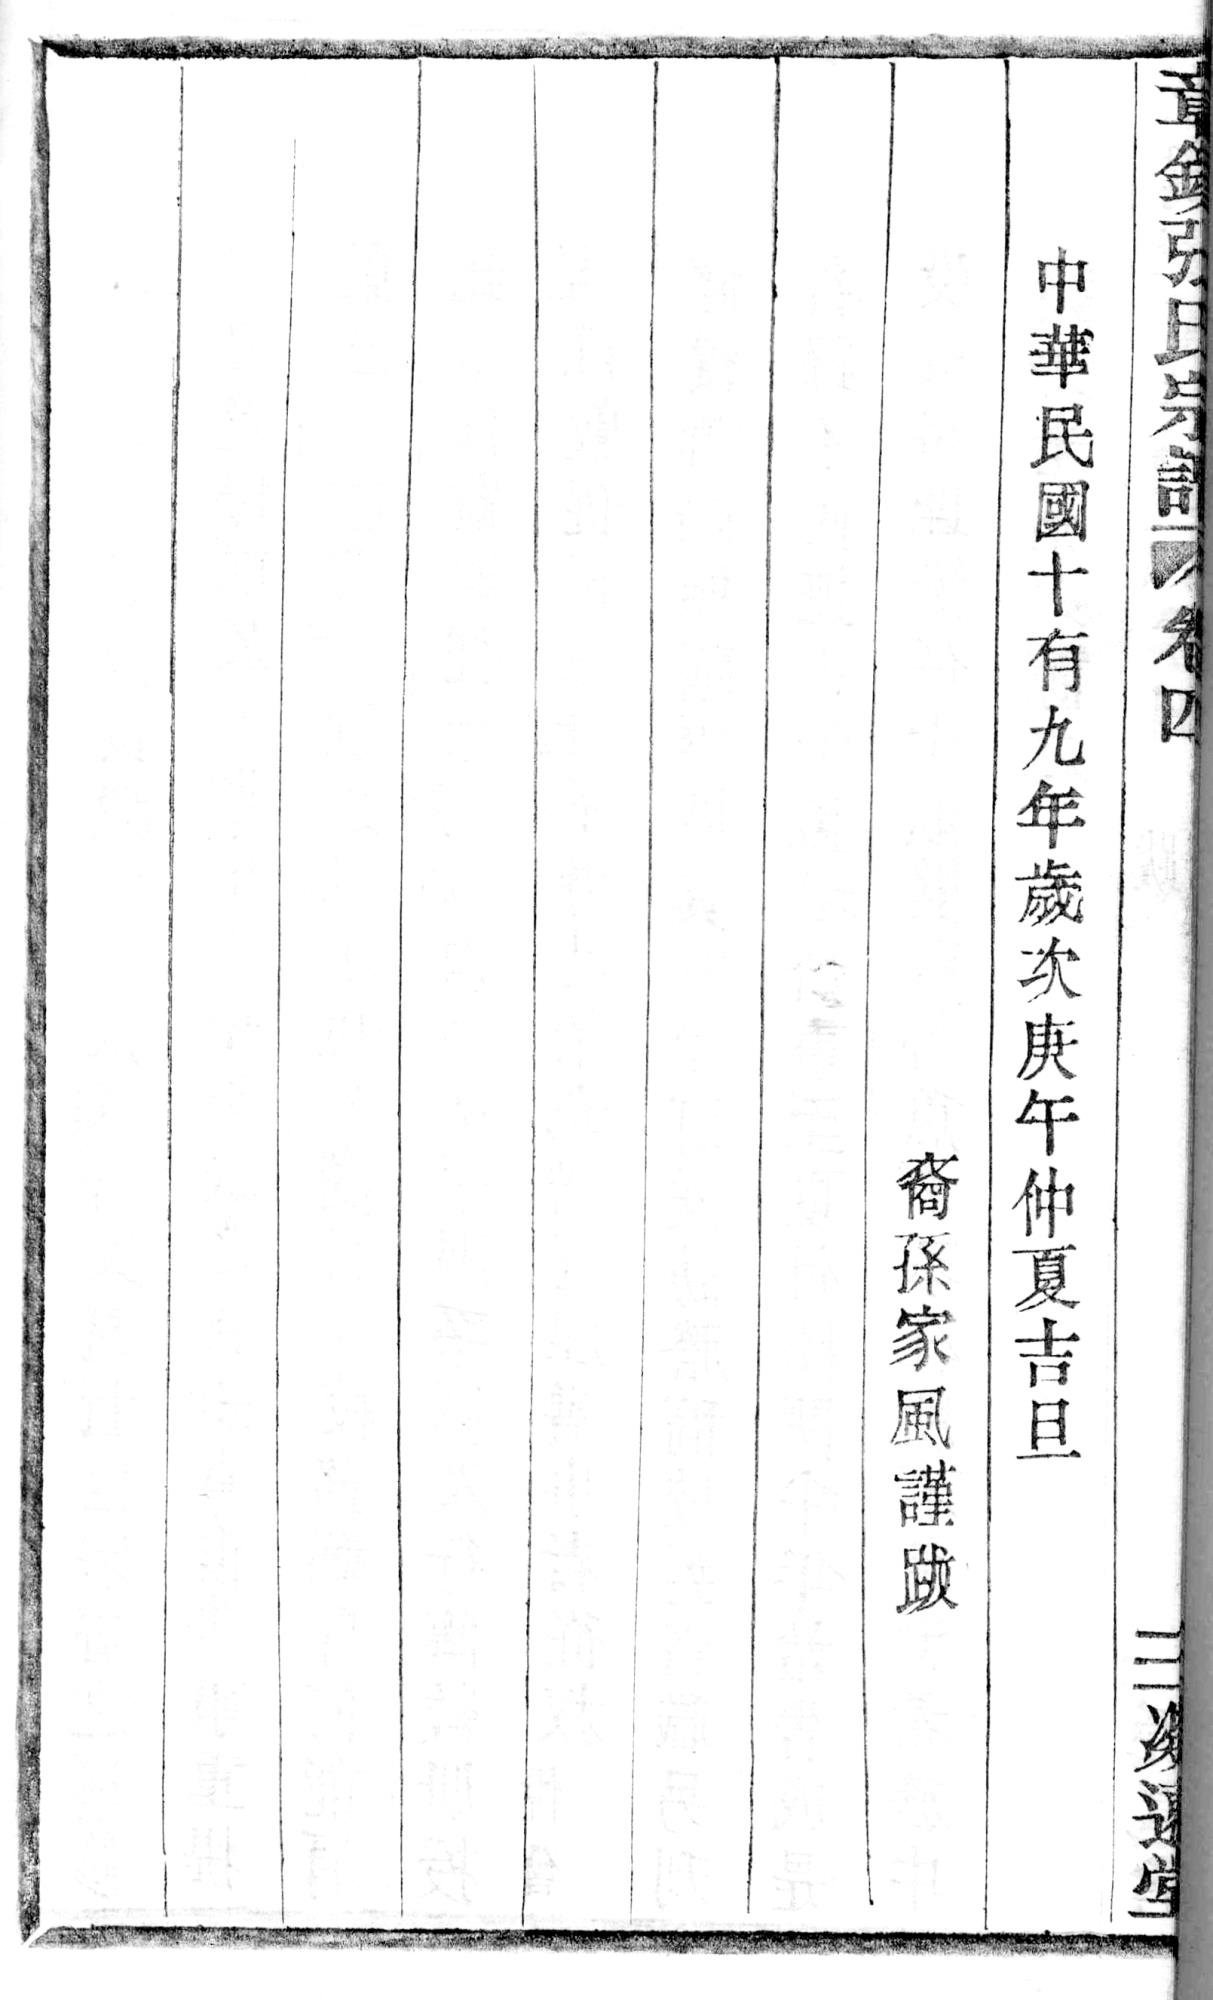 章鎮張氏宗譜 卷四
三 追遠堂
中華民國十有九年歲次庚午仲夏吉旦
裔孫家風謹跋